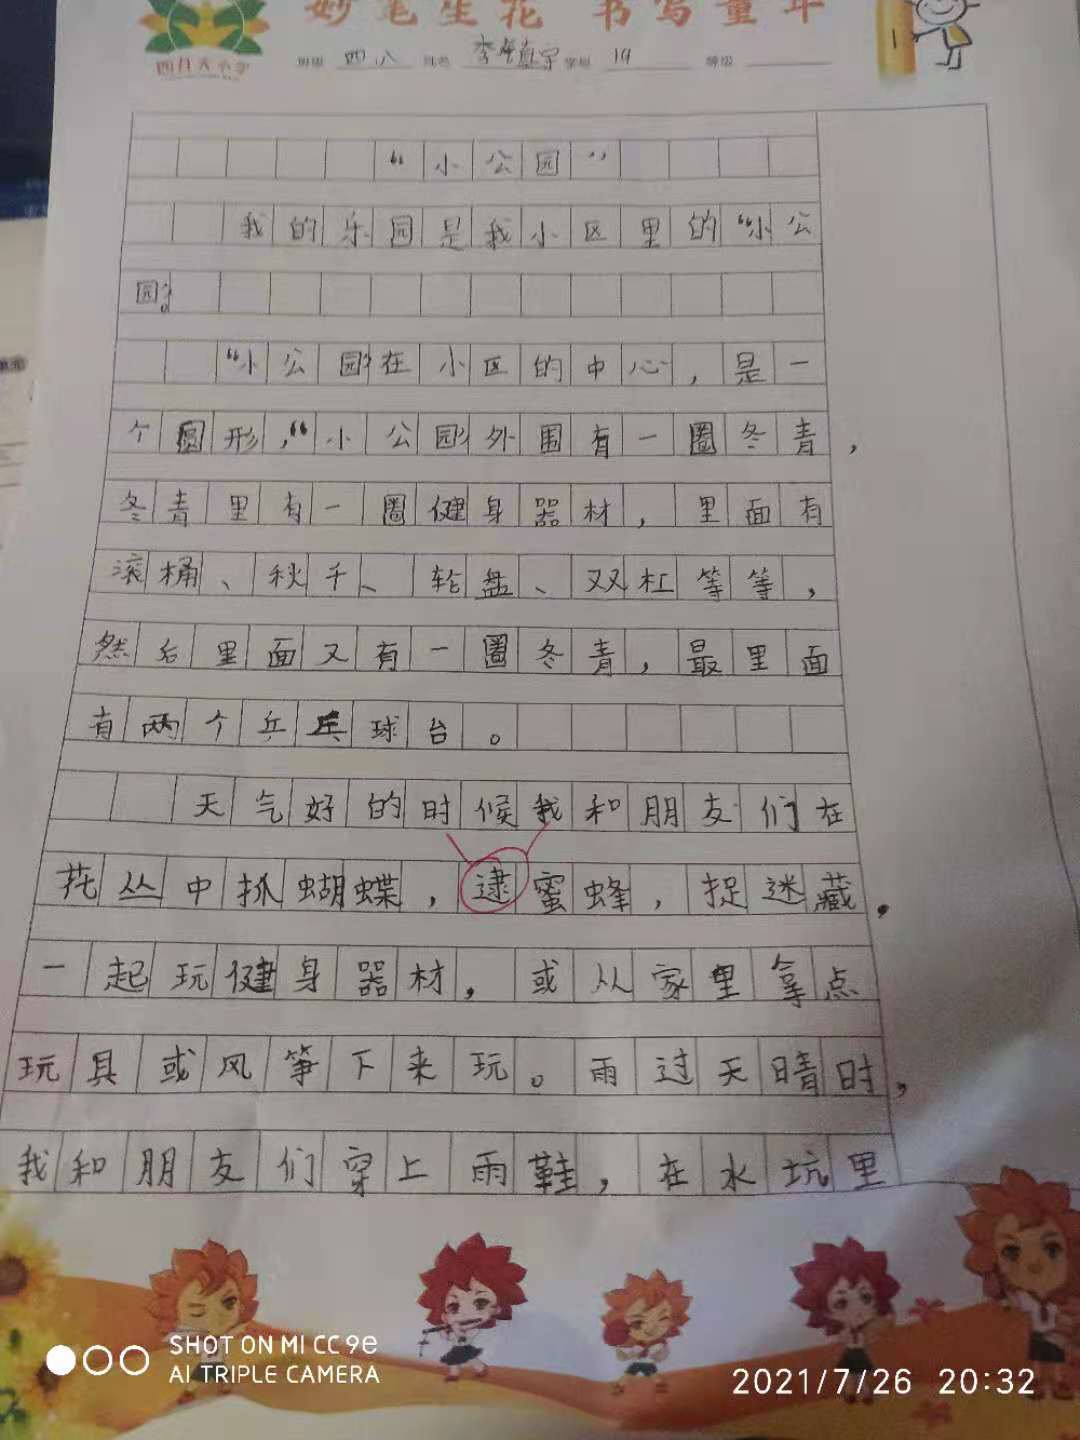 妙笔生花 书写童年
四月天小学
班级 四八 姓名 李 宇 学号 19 等级
“小公园”
我的乐园是我小区里的“小公
园”。
“小公园”在小区的中心，是一
个圆形，“小公园”外围有一圈冬青，
冬青里有一圈健身器材，里面有
滚桶、秋千、轮盘、双杠等等，
然后里面又有一圈冬青，最里面
有两个乒乓球台。
天气好的时候我和朋友们在
花丛中抓蝴蝶，逮蜜蜂，捉迷藏，
一起玩健身器材，或从家里拿点
玩具或风筝下来玩。雨过天晴时，
我和朋友们穿上雨鞋，在水坑里
SHOT ON MI CC 9e
AI TRIPLE CAMERA
2021/7/26 20:32